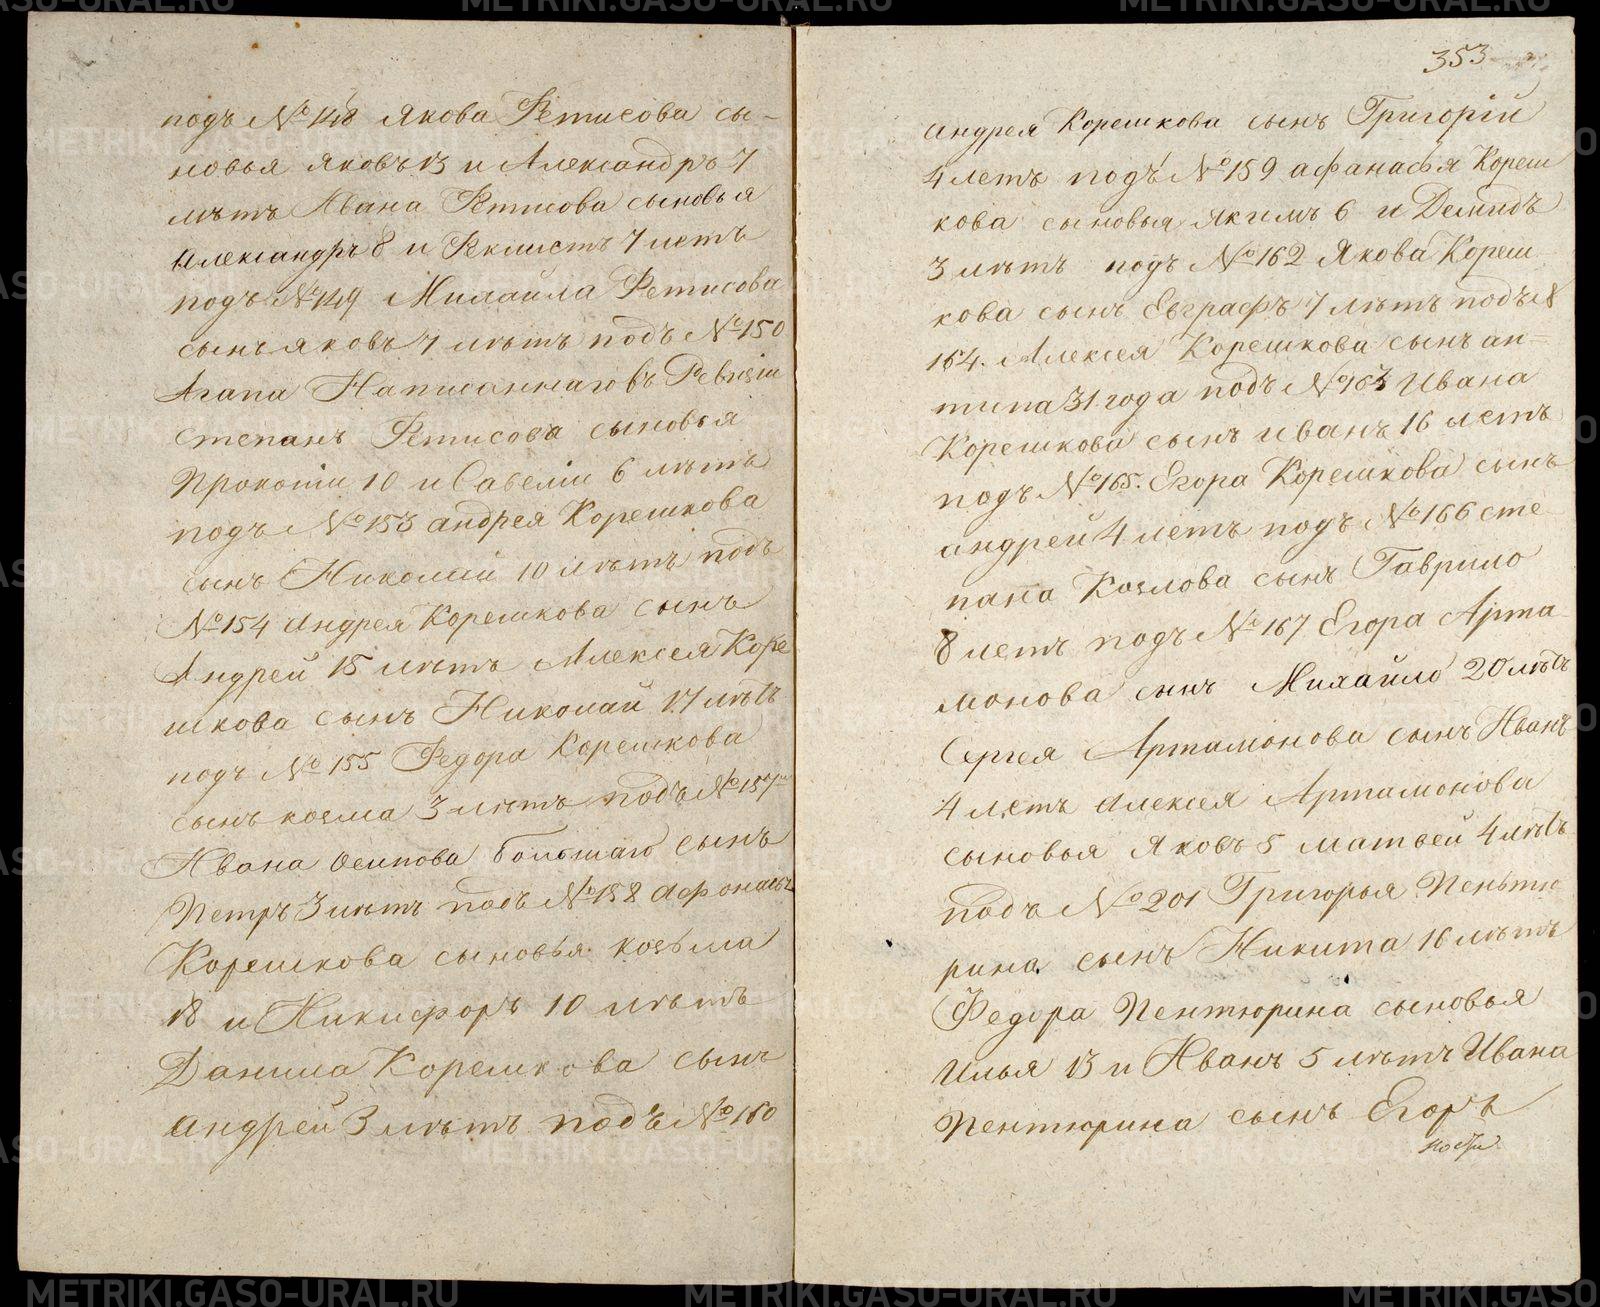 подъ №148 Якова Фетисова сы-
новья яковъ 13 и Александръ 7
лѣтъ Ивана Фетисова сыновья
Александръ 8 и Феклистъ 7 летъ
подъ №149 Михаила Фетисова
сынъ яковъ 7 лѣтъ подъ №150
Агапа Написаннаго въ Ревизіи
Степанъ Фетисова сыновья
Прокопіи 10 и Савеліи 6 лѣтъ
подъ №153 андрея Корешкова
сынъ Николаи 10 лѣтъ подъ
№154 андрея Корешкова сынъ
Андрей 15 лѣтъ Алексея Коре
шкова сынъ Николай 17 лѣтъ
подъ № 155 Федора Корешкова
сынъ козма 3 лѣтъ подъ №157
Ивана осипова большаго сынъ
Петръ 3 лѣтъ подъ №158 афонасья
Корешкова сыновья козьма
18 и Никифоръ 10 лѣтъ
Данила Корешкова сынъ
андрей 3 лѣтъ подъ №160
353
андрея Корешкова сынъ Григорій
4 летъ подъ №159 афанасья Кореш
кова сыновья якимъ 6 и Демидъ
3 лѣтъ подъ №162 Якова Кореш
кова сынъ Евграфъ 7 лѣтъ подъ №
164. Алексея Корешкова сынъ ан=
типа 31 года подъ №163 Ивана
Корешкова сынъ иванъ 16 летъ
подъ №165. Егора Корешкова сынъ
андрей 4 летъ подъ №166 сте
пана Козлова сынъ Гаврило
8 летъ подъ №167 Егора Арта
монова сынъ Михайло 20 лѣтъ
Сергея Артамонова сынъ Иванъ
4 летъ Алексея Артамонова
сыновья Яковъ 5 матвей 4 лѣтъ
подъ №201 Григорья Пеньтю
рина сынъ Никита 16 лѣтъ
Федора Пентюрина сыновья
Илья 13 и Иванъ 5 лѣтъ Ивана
Пентюрина сынъ Егоръ
METRIKI.GASO-URAL.RU